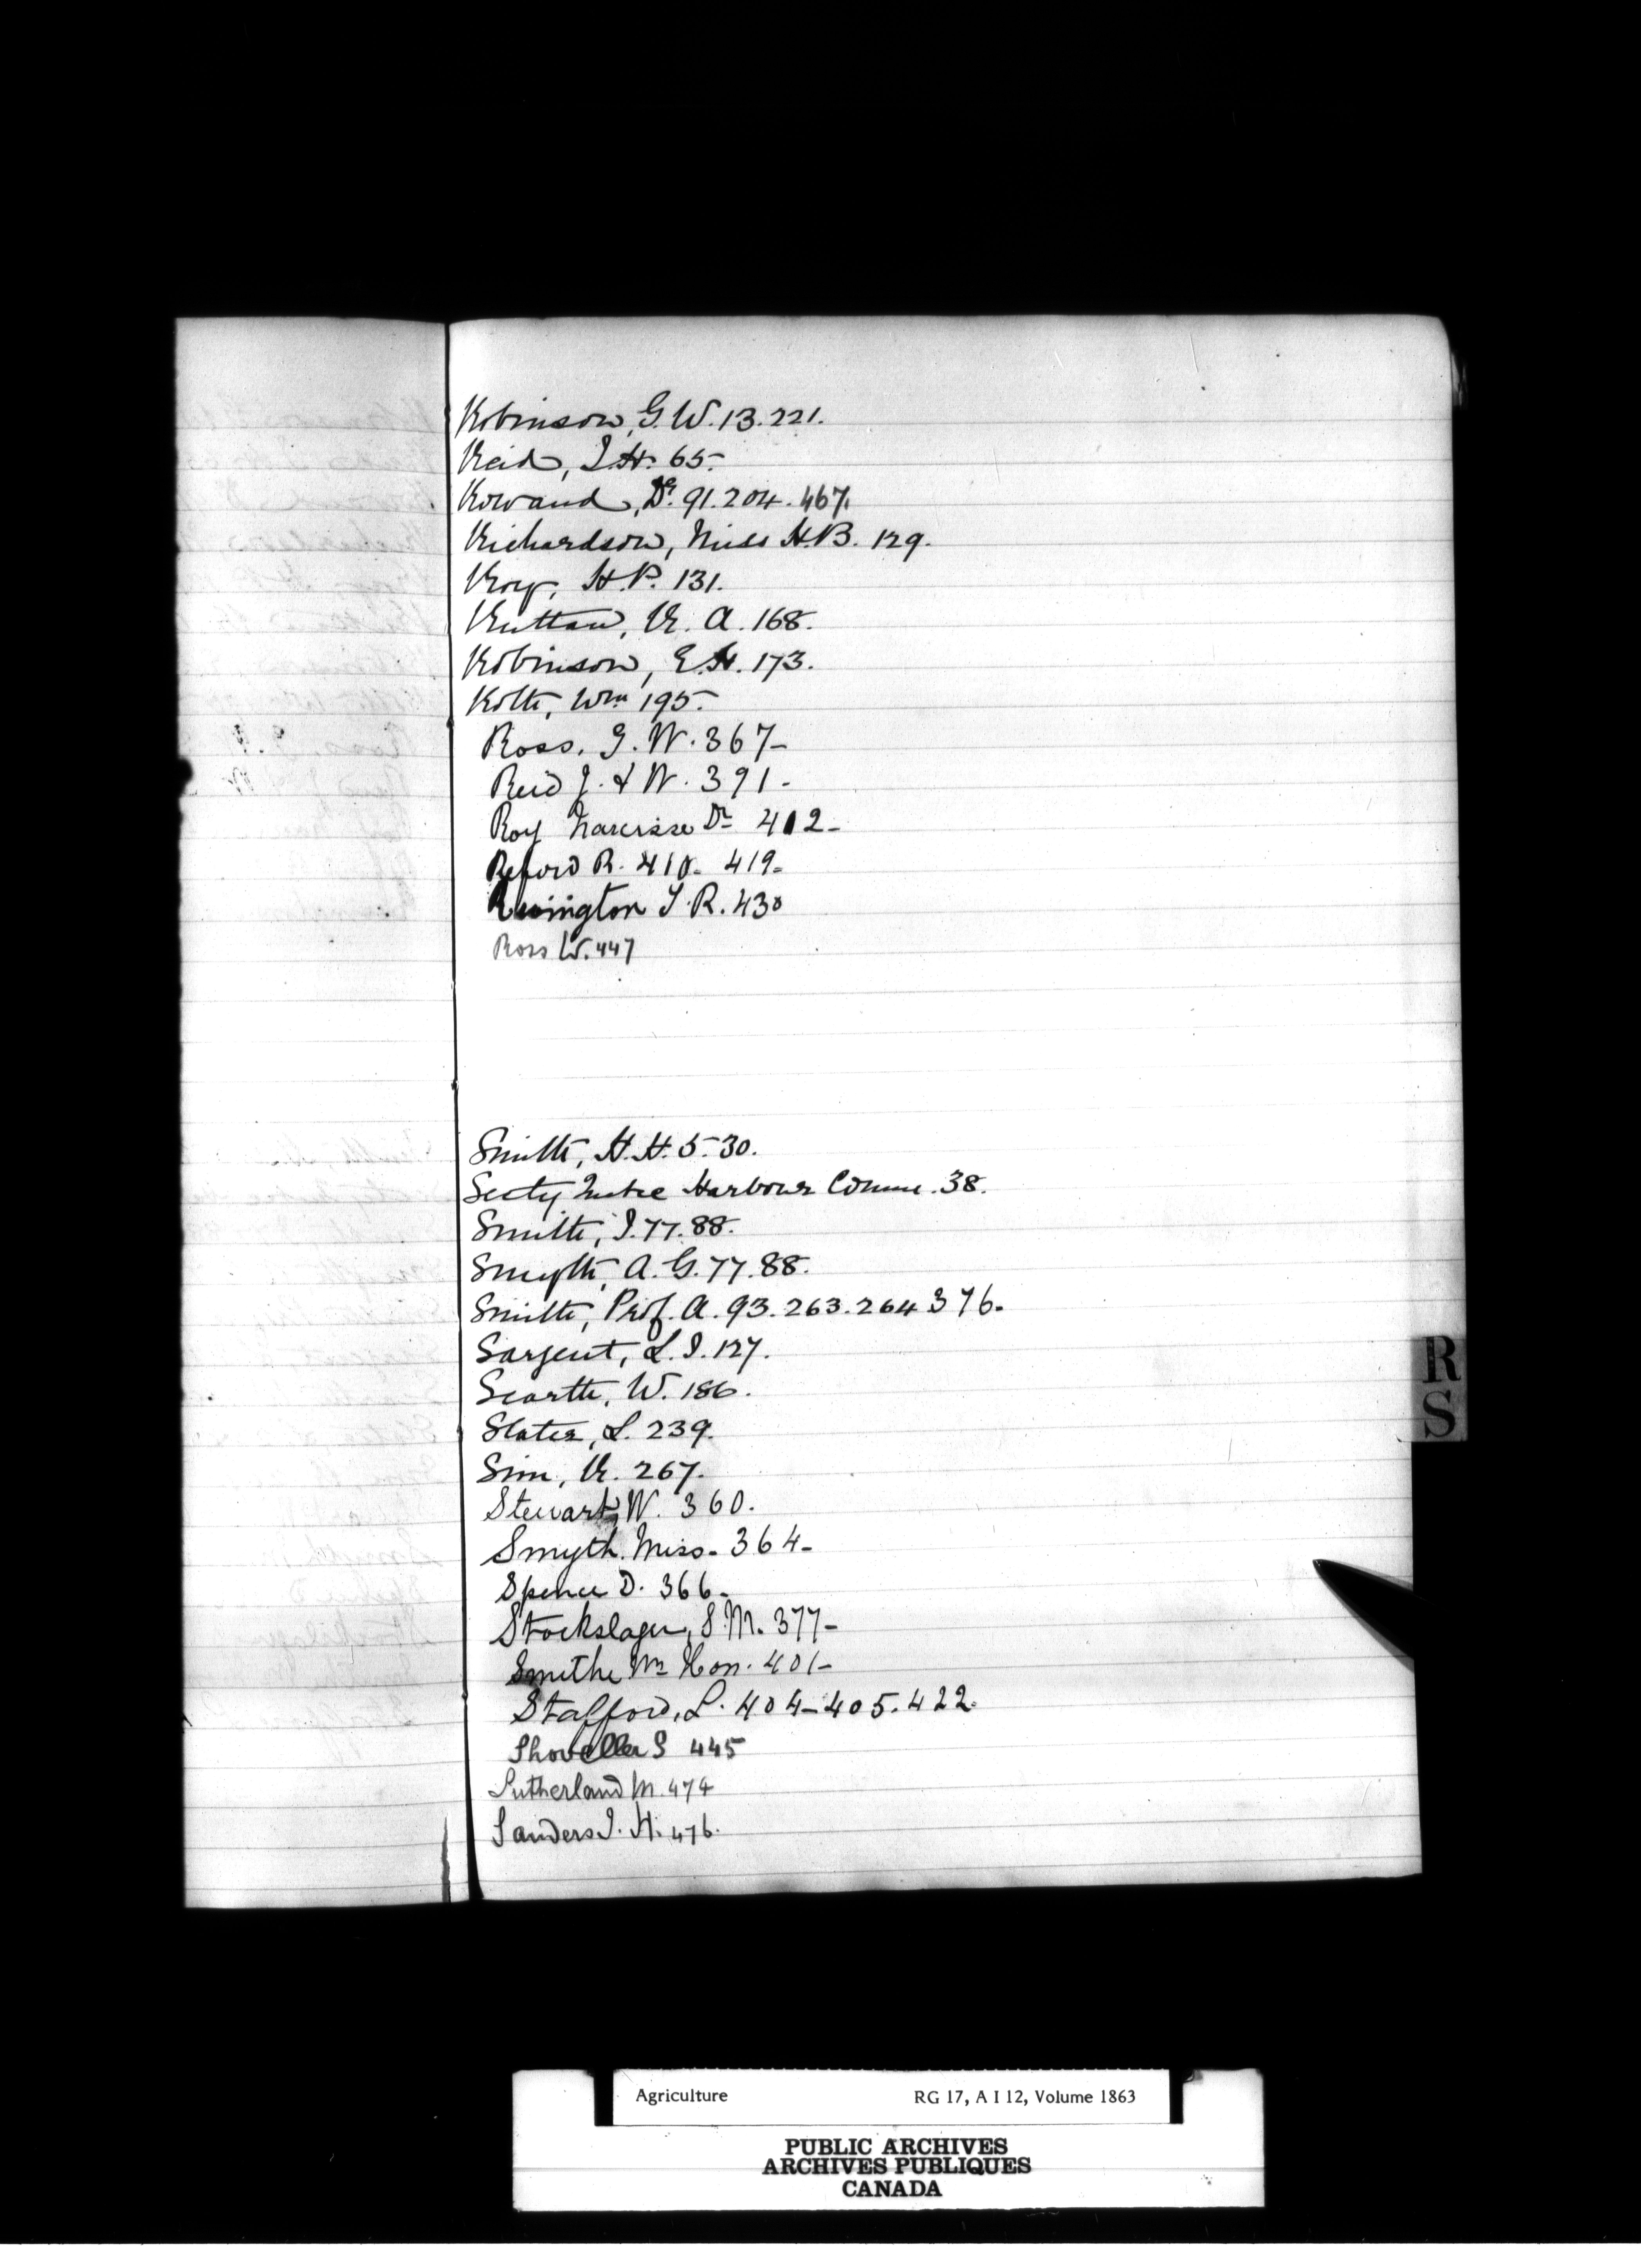 Robinson, G. W. 13. 221.
Reid, J. H. 65.
Rowand, Dr. 91. 204. 467.
Richardson, Miss H. B. 129.
Roy, H. P. 131.
Ruttan, R. A. 168.
Robinson, E. H. 173.
Rolth, Wm 195.
Ross. G. W. 367-
Reid J. & W. 391-
Roy Narcisse Dr 412-
Reford R. 410- 419-
Rivington T. R. 430
Ross W. 447
Smith, H. H. 5. 30.
Secty Harbour Comm. 38.
Smith, J. 77. 88.
Smyth, A. G. 77. 88.
Smith, Prof. A. 93. 263. 264 376.
Sargent, L. J. 127.
Scarth, W. 186.
Slater, L. 239.
Sim, R. 267.
Stewart, W. 360.
Smyth. Miss- 364-
Spence D. 366-
Stockslager, S. M. 377-
Smithe Wm Hon. 401-
Stafford, L. 404-405. 422.
Shoveller S 445
Sutherland M. 474
Sanders J. H. 476.
R
S
Agriculture RG 17, A I 12, Volume 1863
PUBLIC ARCHIVES
ARCHIVES PUBLIQUES
CANADA